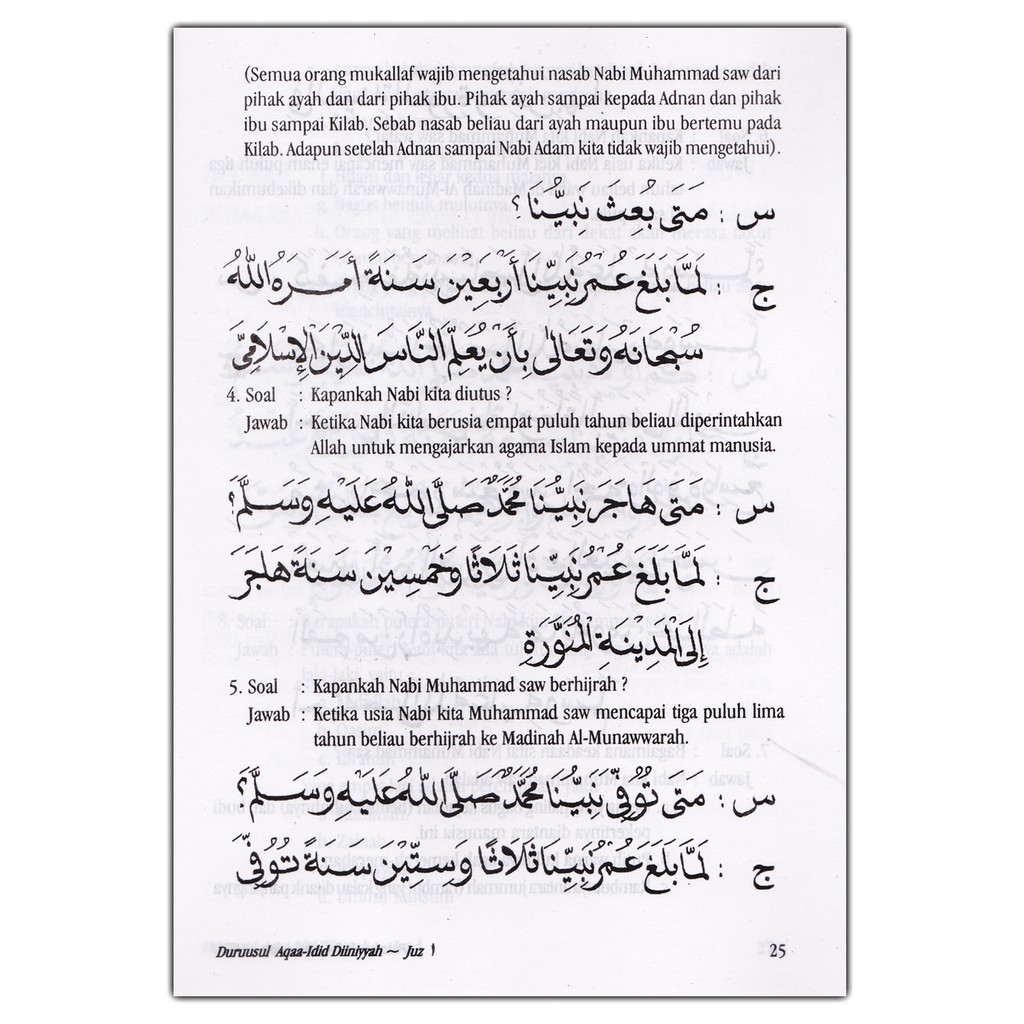 (Semua orang mukallaf wajib mengetahui nasab Nabi Muhammad saw dari
pihak ayah dan dari pihak ibu. Pihak ayah sampai kepada Adnan dan pihak
ibu sampai Kilab. Sebab nasab beliau dari ayah maupun ibu bertemu pada
Kilab. Adapun setelah Adnan sampai Nabi Adam kita tidak wajib mengetahui).
س : مَتَى بُعِثَ نَبِيُّنَا ؟
ج : لَمَّا بَلَغَ عُمْرُ نَبِيِّنَا أَرْبَعِيْنَ سَنَةً أَمَرَهُ اللهُ
سُبْحَانَهُ وَتَعَالَى بِأَنْ يُعَلِّمَ النَّاسَ الدِّيْنَ الْإِسْلَامِيَّ
4. Soal : Kapankah Nabi kita diutus ?
Jawab : Ketika Nabi kita berusia empat puluh tahun beliau diperintahkan
Allah untuk mengajarkan agama Islam kepada ummat manusia.
س : مَتَى هَاجَرَ نَبِيُّنَا مُحَمَّدٌ صَلَّى اللهُ عَلَيْهِ وَسَلَّمَ ؟
ج : لَمَّا بَلَغَ عُمْرُ نَبِيِّنَا ثَلَاثًا وَخَمْسِيْنَ سَنَةً هَاجَرَ
إِلَى الْمَدِيْنَةِ الْمُنَوَّرَةِ
5. Soal : Kapankah Nabi Muhammad saw berhijrah ?
Jawab : Ketika usia Nabi kita Muhammad saw mencapai tiga puluh lima
tahun beliau berhijrah ke Madinah Al-Munawwarah.
س : مَتَى تُوُفِّيَ نَبِيُّنَا مُحَمَّدٌ صَلَّى اللهُ عَلَيْهِ وَسَلَّمَ ؟
ج : لَمَّا بَلَغَ عُمْرُ نَبِيِّنَا ثَلَاثًا وَسِتِّيْنَ سَنَةً تُوُفِّيَ
Duruusul Aqaa-Idid Diiniyyah ~ Juz ١ 25